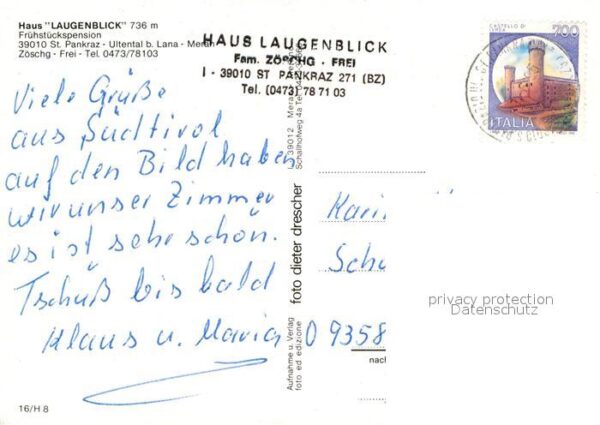 Haus "LAUGENBLICK" 736 m
Frühstückspension
39010 St. Pankraz - Ultental b. Lana - Meran
Zöschg - Frei - Tel. 0473/78103
HAUS LAUGENBLICK
Fam. ZÖSCHG - FREI
I - 39010 ST PANKRAZ 271 (BZ)
Tel. (0473) 78 71 03
CASTELLO DI
700
ITALIA
Viele Grüße
aus Südtirol
auf den Bild haben
wir unser Zimmer
es ist sehr schön.
Tschüß bis bald
Klaus u. Maria
Aufnahme u. Verlag
foto ed edizione
foto dieter drescher
I-39012 Meran
Schallhofweg 4a Tel.
Kari
Schu
D 9358
nach
privacy protection
Datenschutz
16/H 8